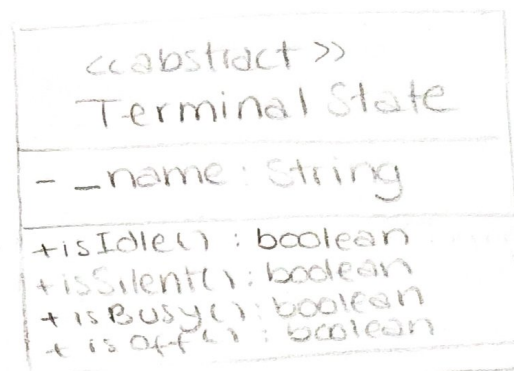 <<abstract>>
Terminal State
- _name: String
+isIdle() : boolean
+isSilent(): boolean
+ isBusy(): boolean
+ isOff() : boolean